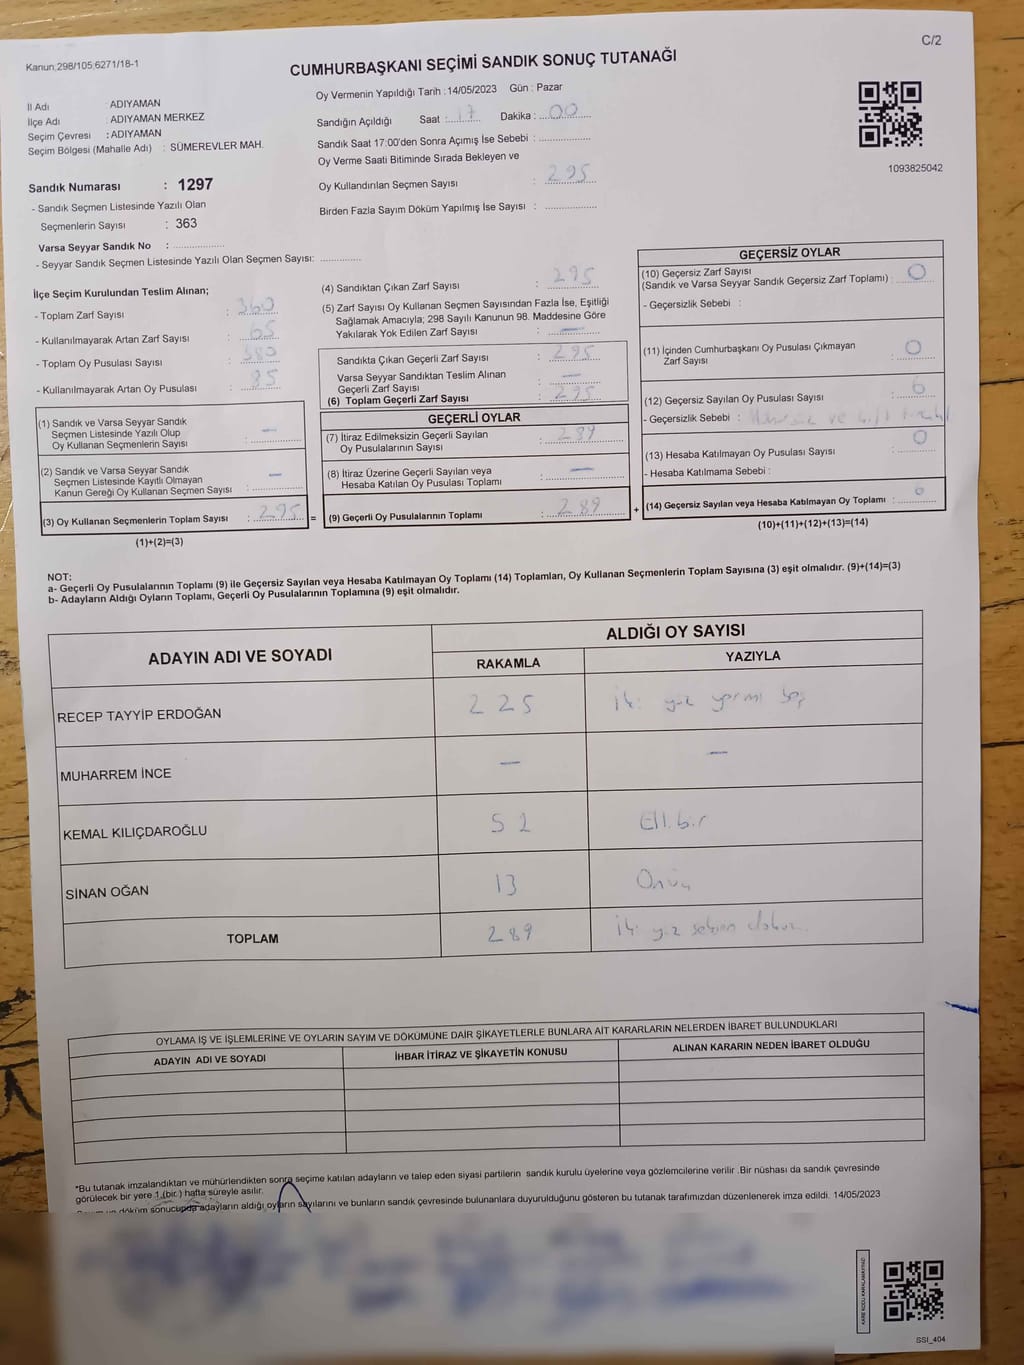 C/2
Kanun;298/105;6271/18-1
CUMHURBAŞKANI SEÇİMİ SANDIK SONUÇ TUTANAĞI
İl Adı : ADIYAMAN
İlçe Adı : ADIYAMAN MERKEZ
Seçim Çevresi : ADIYAMAN
Seçim Bölgesi (Mahalle Adı) : SÜMEREVLER MAH.
Sandık Numarası : 1297
- Sandık Seçmen Listesinde Yazılı Olan
Seçmenlerin Sayısı : 363
Varsa Seyyar Sandık No : ....................
- Seyyar Sandık Seçmen Listesinde Yazılı Olan Seçmen Sayısı: ..............
Oy Vermenin Yapıldığı Tarih : 14/05/2023 Gün : Pazar
Sandığın Açıldığı Saat : 17 Dakika : 00
Sandık Saat 17:00'den Sonra Açımış İse Sebebi : ..................
Oy Verme Saati Bitiminde Sırada Bekleyen ve
Oy Kullandırılan Seçmen Sayısı : 295
Birden Fazla Sayım Döküm Yapılmış İse Sayısı : ..................
1093825042
İlçe Seçim Kurulundan Teslim Alınan;
- Toplam Zarf Sayısı : 360
- Kullanılmayarak Artan Zarf Sayısı : 65
- Toplam Oy Pusulası Sayısı : 380
- Kullanılmayarak Artan Oy Pusulası : 85
(1) Sandık ve Varsa Seyyar Sandık
Seçmen Listesinde Yazılı Olup
Oy Kullanan Seçmenlerin Sayısı : —
(2) Sandık ve Varsa Seyyar Sandık
Seçmen Listesinde Kayıtlı Olmayan
Kanun Gereği Oy Kullanan Seçmen Sayısı : —
(3) Oy Kullanan Seçmenlerin Toplam Sayısı : 295 =
(1)+(2)=(3)
(4) Sandıktan Çıkan Zarf Sayısı : 295
(5) Zarf Sayısı Oy Kullanan Seçmen Sayısından Fazla İse, Eşitliği
Sağlamak Amacıyla; 298 Sayılı Kanunun 98. Maddesine Göre
Yakılarak Yok Edilen Zarf Sayısı : —
Sandıkta Çıkan Geçerli Zarf Sayısı : 295
Varsa Seyyar Sandıktan Teslim Alınan
Geçerli Zarf Sayısı : —
(6) Toplam Geçerli Zarf Sayısı : 295
GEÇERLİ OYLAR
(7) İtiraz Edilmeksizin Geçerli Sayılan
Oy Pusulalarının Sayısı : 289
(8) İtiraz Üzerine Geçerli Sayılan veya
Hesaba Katılan Oy Pusulası Toplamı : —
(9) Geçerli Oy Pusulalarının Toplamı : 289 +
GEÇERSİZ OYLAR
(10) Geçersiz Zarf Sayısı
(Sandık ve Varsa Seyyar Sandık Geçersiz Zarf Toplamı) : 0
- Geçersizlik Sebebi :
(11) İçinden Cumhurbaşkanı Oy Pusulası Çıkmayan
Zarf Sayısı : 0
(12) Geçersiz Sayılan Oy Pusulası Sayısı : 6
- Geçersizlik Sebebi : ve
(13) Hesaba Katılmayan Oy Pusulası Sayısı : 0
- Hesaba Katılmama Sebebi :
(14) Geçersiz Sayılan veya Hesaba Katılmayan Oy Toplamı : 0
(10)+(11)+(12)+(13)=(14)
NOT:
a- Geçerli Oy Pusulalarının Toplamı (9) ile Geçersiz Sayılan veya Hesaba Katılmayan Oy Toplamı (14) Toplamları, Oy Kullanan Seçmenlerin Toplam Sayısına (3) eşit olmalıdır. (9)+(14)=(3)
b- Adayların Aldığı Oyların Toplamı, Geçerli Oy Pusulalarının Toplamına (9) eşit olmalıdır.
ADAYIN ADI VE SOYADI
ALDIĞI OY SAYISI
RAKAMLA YAZIYLA
RECEP TAYYİP ERDOĞAN 225 İki yüz yirmi beş
MUHARREM İNCE — —
KEMAL KILIÇDAROĞLU 52 Elli bir
SİNAN OĞAN 13 Onüç
TOPLAM 289 İki yüz seksen dokuz
OYLAMA İŞ VE İŞLEMLERİNE VE OYLARIN SAYIM VE DÖKÜMÜNE DAİR ŞİKAYETLERLE BUNLARA AİT KARARLARIN NELERDEN İBARET BULUNDUKLARI
ADAYIN ADI VE SOYADI İHBAR İTİRAZ VE ŞİKAYETİN KONUSU ALINAN KARARIN NEDEN İBARET OLDUĞU
*Bu tutanak imzalandıktan ve mühürlendikten sonra seçime katılan adayların ve talep eden siyasi partilerin sandık kurulu üyelerine veya gözlemcilerine verilir .Bir nüshası da sandık çevresinde
görülecek bir yere 1 (bir.) hafta süreyle asılır.
döküm sonucunda adayların aldığı oyların sayılarını ve bunların sandık çevresinde bulunanlara duyurulduğunu gösteren bu tutanak tarafımızdan düzenlenerek imza edildi. 14/05/2023
KARE KODU KARALAMAYINIZ!
SSI_404